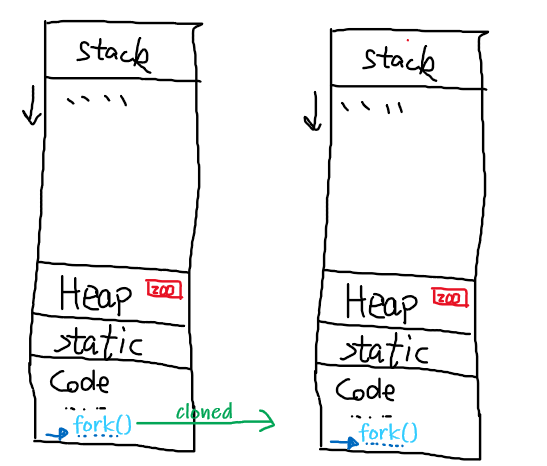 stack
Heap 200
static
Code
fork()
cloned
stack
Heap 200
static
Code
fork()